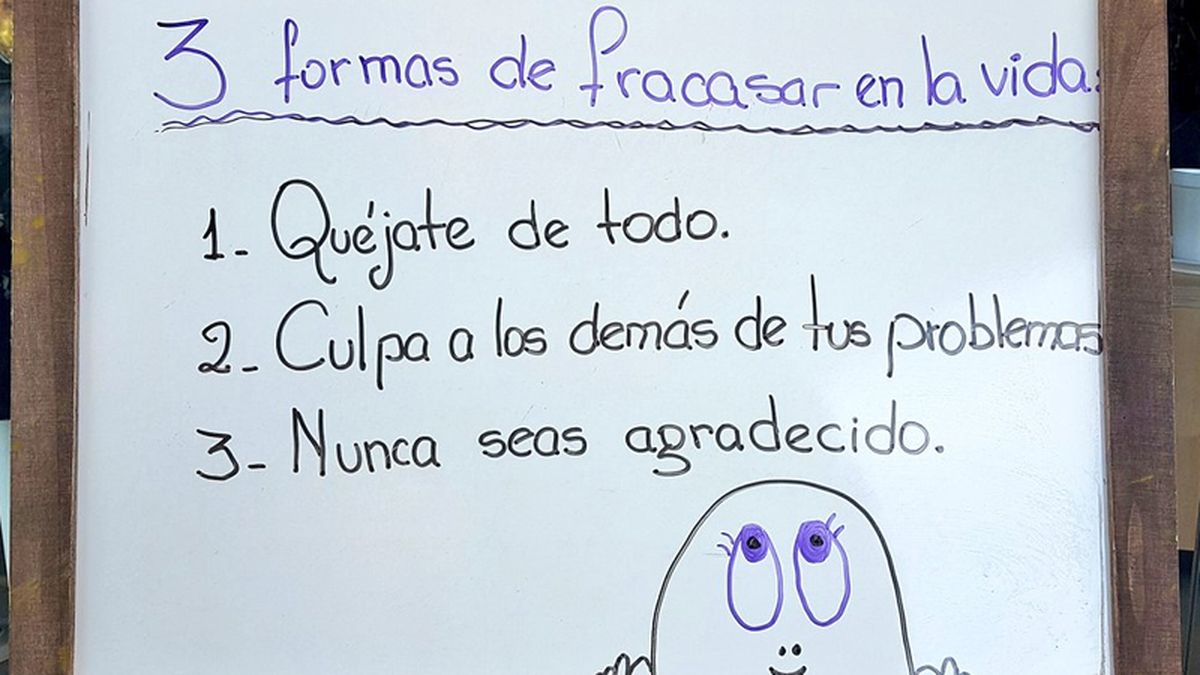 3 formas de fracasar en la vida:
1- Quéjate de todo.
2- Culpa a los demás de tus problemas
3- Nunca seas agradecido.